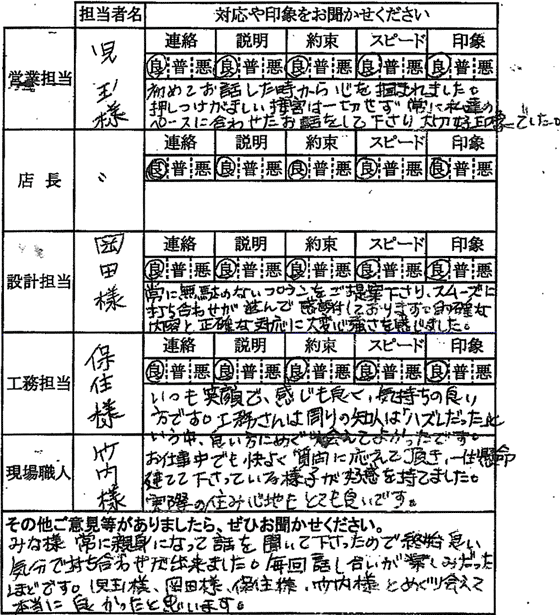 担当者名 対応や印象をお聞かせください
営業担当 児玉様
連絡 説明 約束 スピード 印象
良 普 悪 良 普 悪 良 普 悪 良 普 悪 良 普 悪
初めてお話した時から心を掴まれました。
押しつけがましい接客は一切せず常に私達の
ペースに合わせたお話をして下さり大切好印象でした。
店長 〃
連絡 説明 約束 スピード 印象
良 普 悪 良 普 悪 良 普 悪 良 普 悪 良 普 悪
設計担当 岡田様
連絡 説明 約束 スピード 印象
良 普 悪 良 普 悪 良 普 悪 良 普 悪 良 普 悪
常に無駄のないプランをご提案下さり、スムーズに
打ち合わせが進んで感謝しております。的確な
内容と正確な対応に大変心強さを感じました。
工務担当 保住様
連絡 説明 約束 スピード 印象
良 普 悪 良 普 悪 良 普 悪 良 普 悪 良 普 悪
いつも笑顔で、感じも良く、気持ちの良い
方です。工務さんは周りの知人は「ハズレだった」と
いう中、良い方にめぐり会えてよかったです。
現場職人 竹内様
お仕事中でも快よく質問に応えて頂き、一生懸命
建てて下さっている様子が好感を持てました。
実際の住み心地もとても良いです。
その他ご意見等がありましたら、ぜひお聞かせください。
みな様常に親身になって話を聞いて下さったので終始良い
気分で打ち合わせが出来ました。毎回話し合いが楽しみだった
ほどです。児玉様、岡田様、保住様、竹内様とめぐり会えて
本当に良かったと思います。